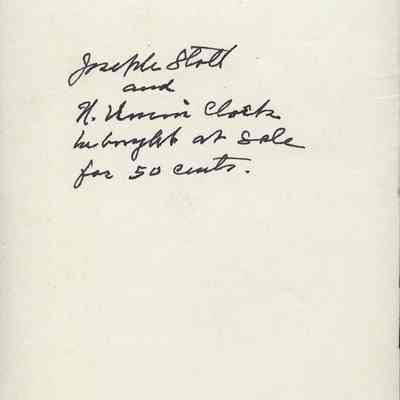 Joseph Stoll
and
N. Clock
he bought at Sale
for 50 cents.